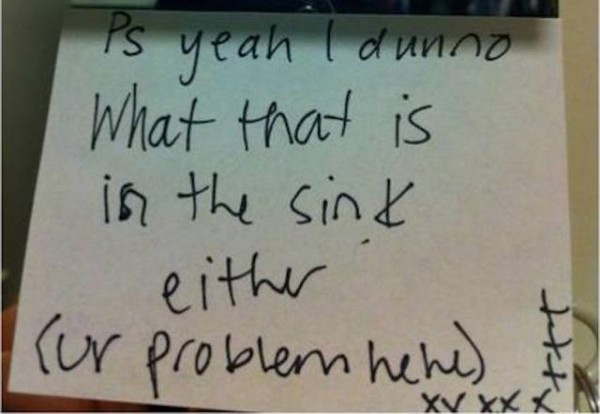 Ps yeah I dunno
What that is
in the sink
either
(ur problem hehe)
xxxxxxxx